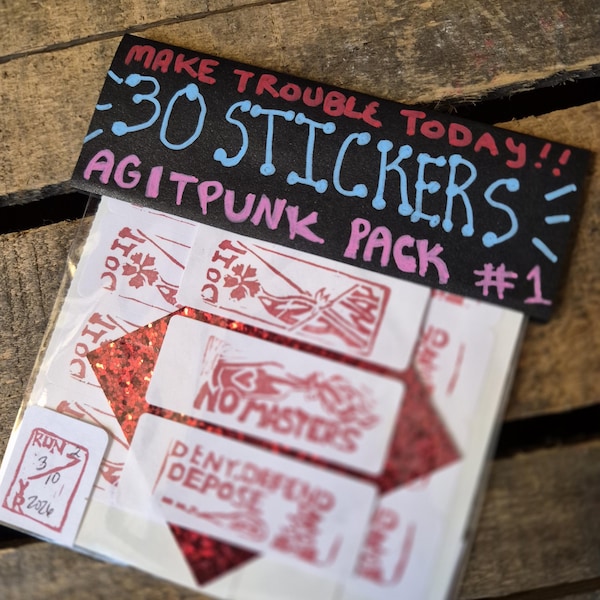 MAKE TROUBLE TODAY!!
30 STICKERS
AGITPUNK PACK #1
DO IT
DO IT
DO IT
NO MASTERS
DENY. DEFEND
DEPOSE
RUN 2
3/10
YR 2026